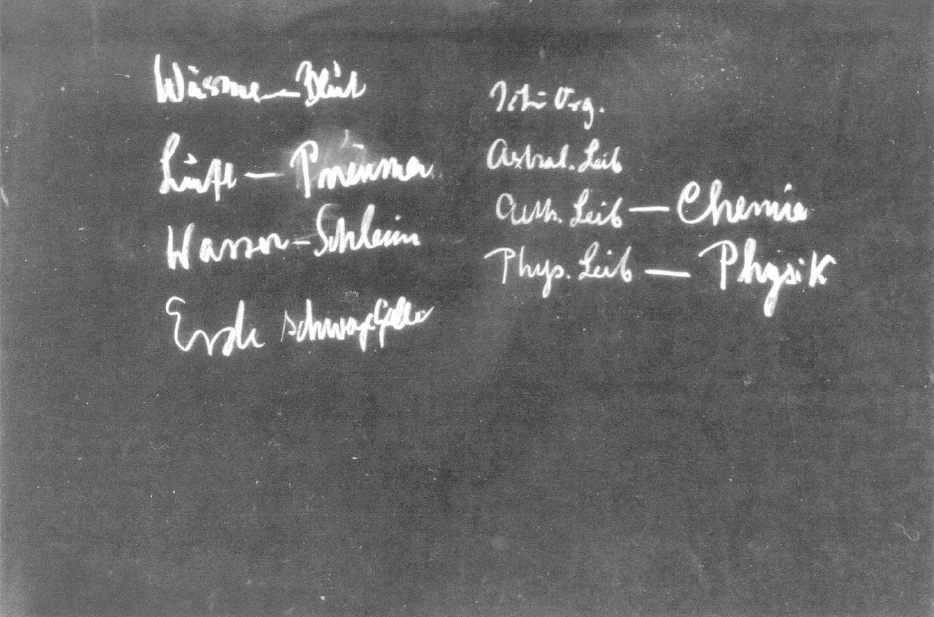 Wärme – Blut
Luft – Pneuma
Wasser – Schleim
Erde schwarze Galle
Ich-Org.
Astral. Leib
Äth. Leib – Chemie
Phys. Leib – Physik